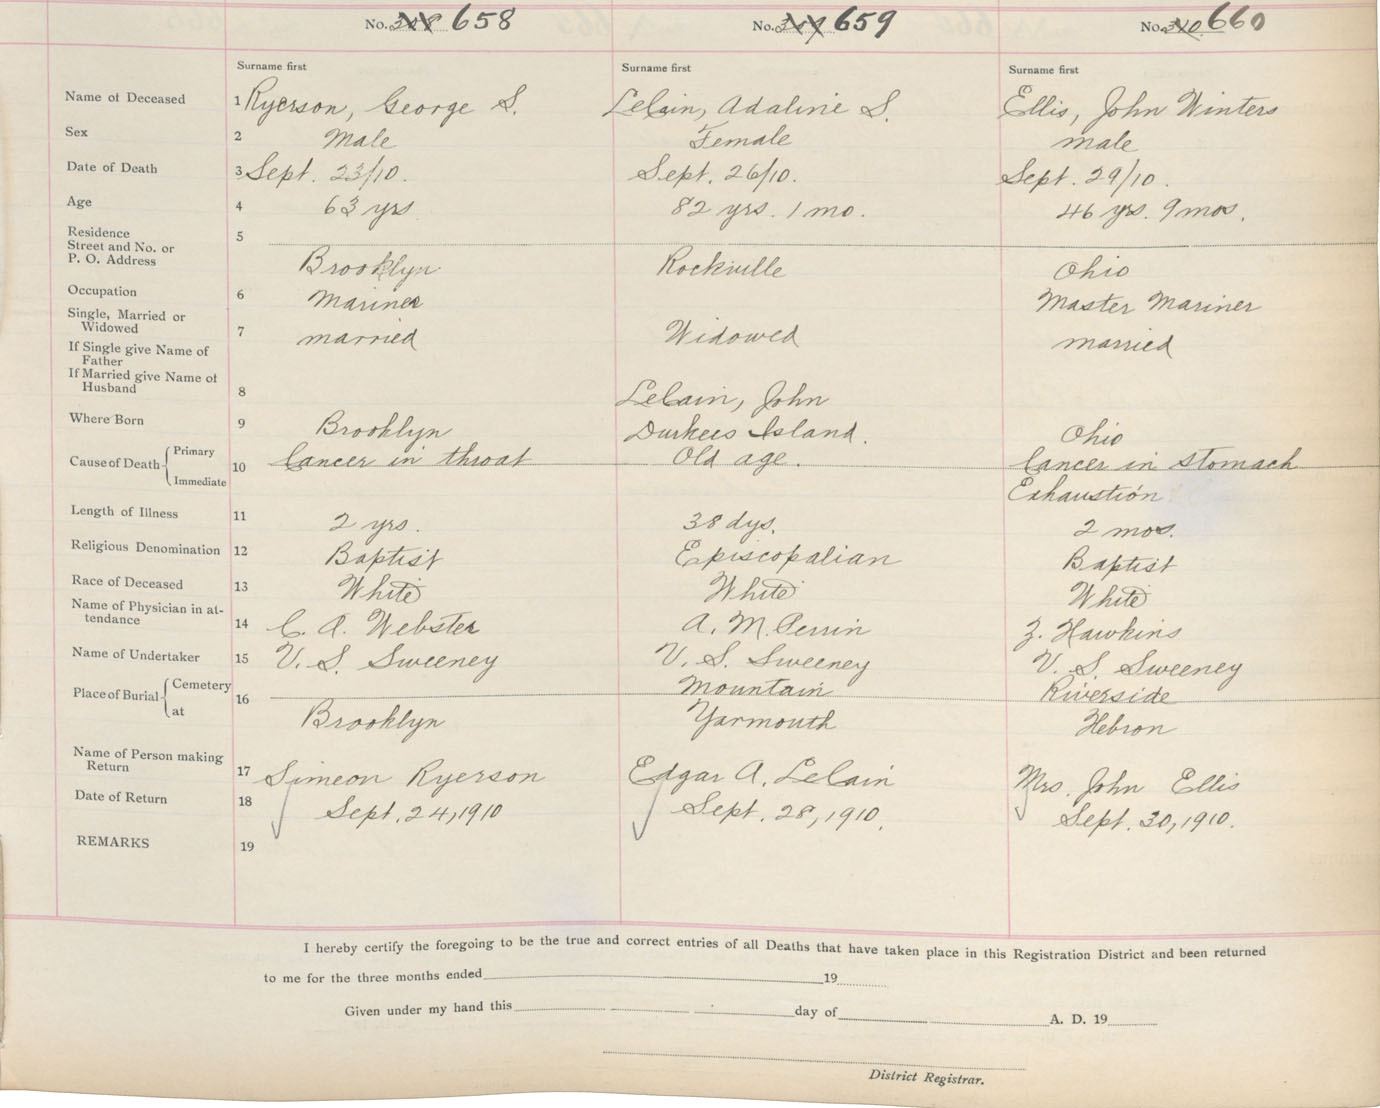 No. 658 No. 659 No. 660
Surname first Surname first Surname first
Name of Deceased 1 Ryerson, George S. LeCain, Adaline S. Ellis, John Winters
Sex 2 Male Female male
Date of Death 3 Sept. 23/10. Sept. 26/10. Sept. 29/10.
Age 4 63 yrs 82 yrs. 1 mo. 46 yrs. 9 mos.
Residence
Street and No. or 5
P. O. Address Brooklyn Rockville Ohio
Occupation 6 Mariner Master Mariner
Single, Married or
Widowed 7 married Widowed married
If Single give Name of
Father
If Married give Name of
Husband 8 LeCain, John
Where Born 9 Brooklyn Durkees Island. Ohio
Cause of Death Primary 10 Cancer in throat Old age. Cancer in Stomach
Immediate Exhaustion
Length of Illness 11 2 yrs. 38 dys. 2 mos.
Religious Denomination 12 Baptist Episcopalian Baptist
Race of Deceased 13 White White White
Name of Physician in at-
tendance 14 C. A. Webster A. M. Perrin Z. Hawkins
Name of Undertaker 15 V. S. Sweeney V. S. Sweeney V. S. Sweeney
Place of Burial Cemetery 16 Mountain Riverside
at Brooklyn Yarmouth Hebron
Name of Person making
Return 17 Simeon Ryerson Edgar A. LeCain Mrs. John Ellis
Date of Return 18 Sept. 24, 1910 Sept. 28, 1910. Sept. 30, 1910.
REMARKS 19
I hereby certify the foregoing to be the true and correct entries of all Deaths that have taken place in this Registration District and been returned
to me for the three months ended 19
Given under my hand this day of A. D. 19
District Registrar.